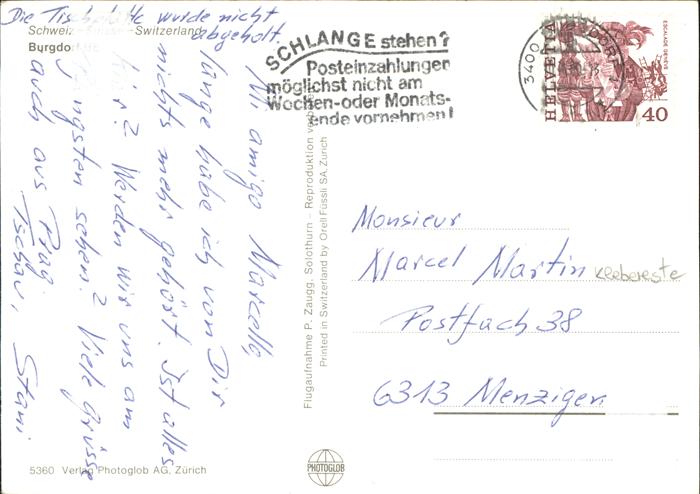 Die Tischplatte wurde nicht
abgeholt.
Schweiz - Suisse - Switzerland
Burgdorf BE
Mi amigo Marcello,
lange habe ich von Dir
nichts mehr gehört. Ist alles
klar? Werden wir uns am
Pfingsten sehen? Viele Grüsse
auch aus Prag.
Tschau, Stani
5360 Verlag Photoglob AG, Zürich
Flugaufnahme P. Zaugg, Solothurn - Reproduktion
Printed in Switzerland by Orell Füssli SA, Zürich
PHOTOGLOB
SCHLANGE stehen?
Posteinzahlungen
möglichst nicht am
Wochen-oder Monats-
ende vornehmen!
3400 BURGDORF
HELVETIA
ESCALADE GENÈVE
40
Monsieur
Marcel Martin Klebereste
Postfach 38
6313 Menzigen